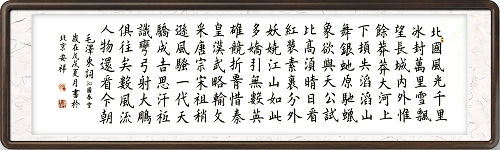 北國風光千里
冰封萬里雪飄
望長城內外惟
餘莽莽大河上
下頓失滔滔山
舞銀蛇原馳蠟
象欲與天公試
比高須晴日看
紅裝素裹分外
妖嬈江山如此
多嬌引無數英
雄競折腰惜秦
皇漢武略輸文
采唐宗宋祖稍
遜風騷一代天
驕成吉思汗祇
識彎弓射大鵰
俱往矣數風流
人物還看今朝
毛澤東詞沁園春雪
歲在戊戌夏月書於
北京安祥